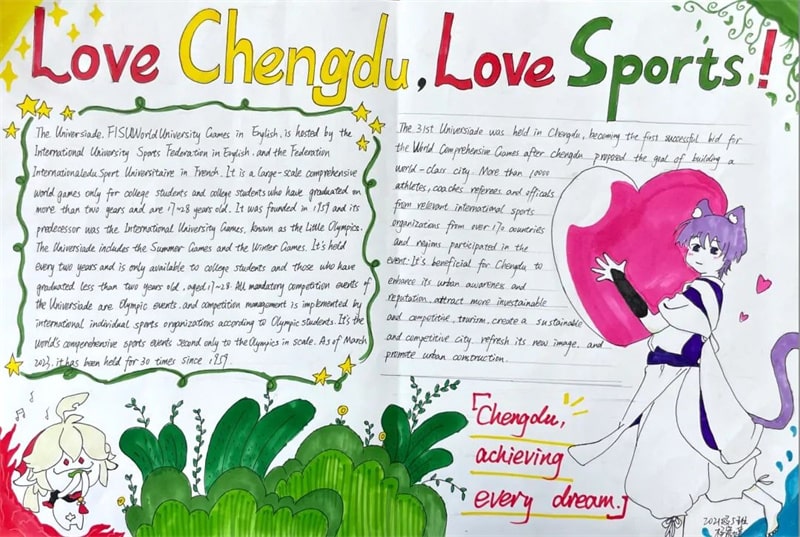 Love Chengdu, Love Sports!
The Universiade, FISU World University Games in English, is hosted by the
International University Sports Federation in English, and the Federation
Internationaledu Sport Universitaire in French. It is a large-scale comprehensive
world games only for college students and college students who have graduated on
more than two years and are 17~28 years old. It was founded in 1959 and its
predecessor was the International University Games, known as the Little Olympics.
The Universiade includes the Summer Games and the Winter Games. It's held
every two years and is only available to college students and those who have
graduated less than two years old, aged 17~28. All mandatory competition events of
the Universiade are Olympic events, and competition management is implemented by
international individual sports organizations according to Olympic students. It's the
world's comprehensive sports events second only to the Olympics in scale. As of March
2023, it has been held for 30 times since 1959.
The 31st Universiade was held in Chengdu, becoming the first successful bid for
the World Comprehensive Games after chengdu proposed the goal of building a
world-class city. More than 10000
athletes, coaches referees and officals
from relevant international sports
organizations from over 170 countries
and regions participated in the
event. It's beneficial for Chengdu to
enhance its urban awareness and
reputation, attract more investable
and competitive, tourism, create a sustainable
and competitive city, refresh its new image, and
promote urban construction.
「Chengdu,
achieving
every dream.」